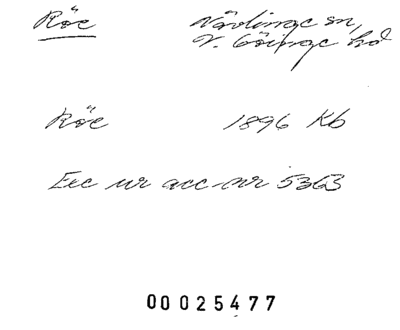 Röe
Nävlinge sn,
V. Göinge hd
Röe
1896 Kb
Exc ur acc nr 5363
00 025477